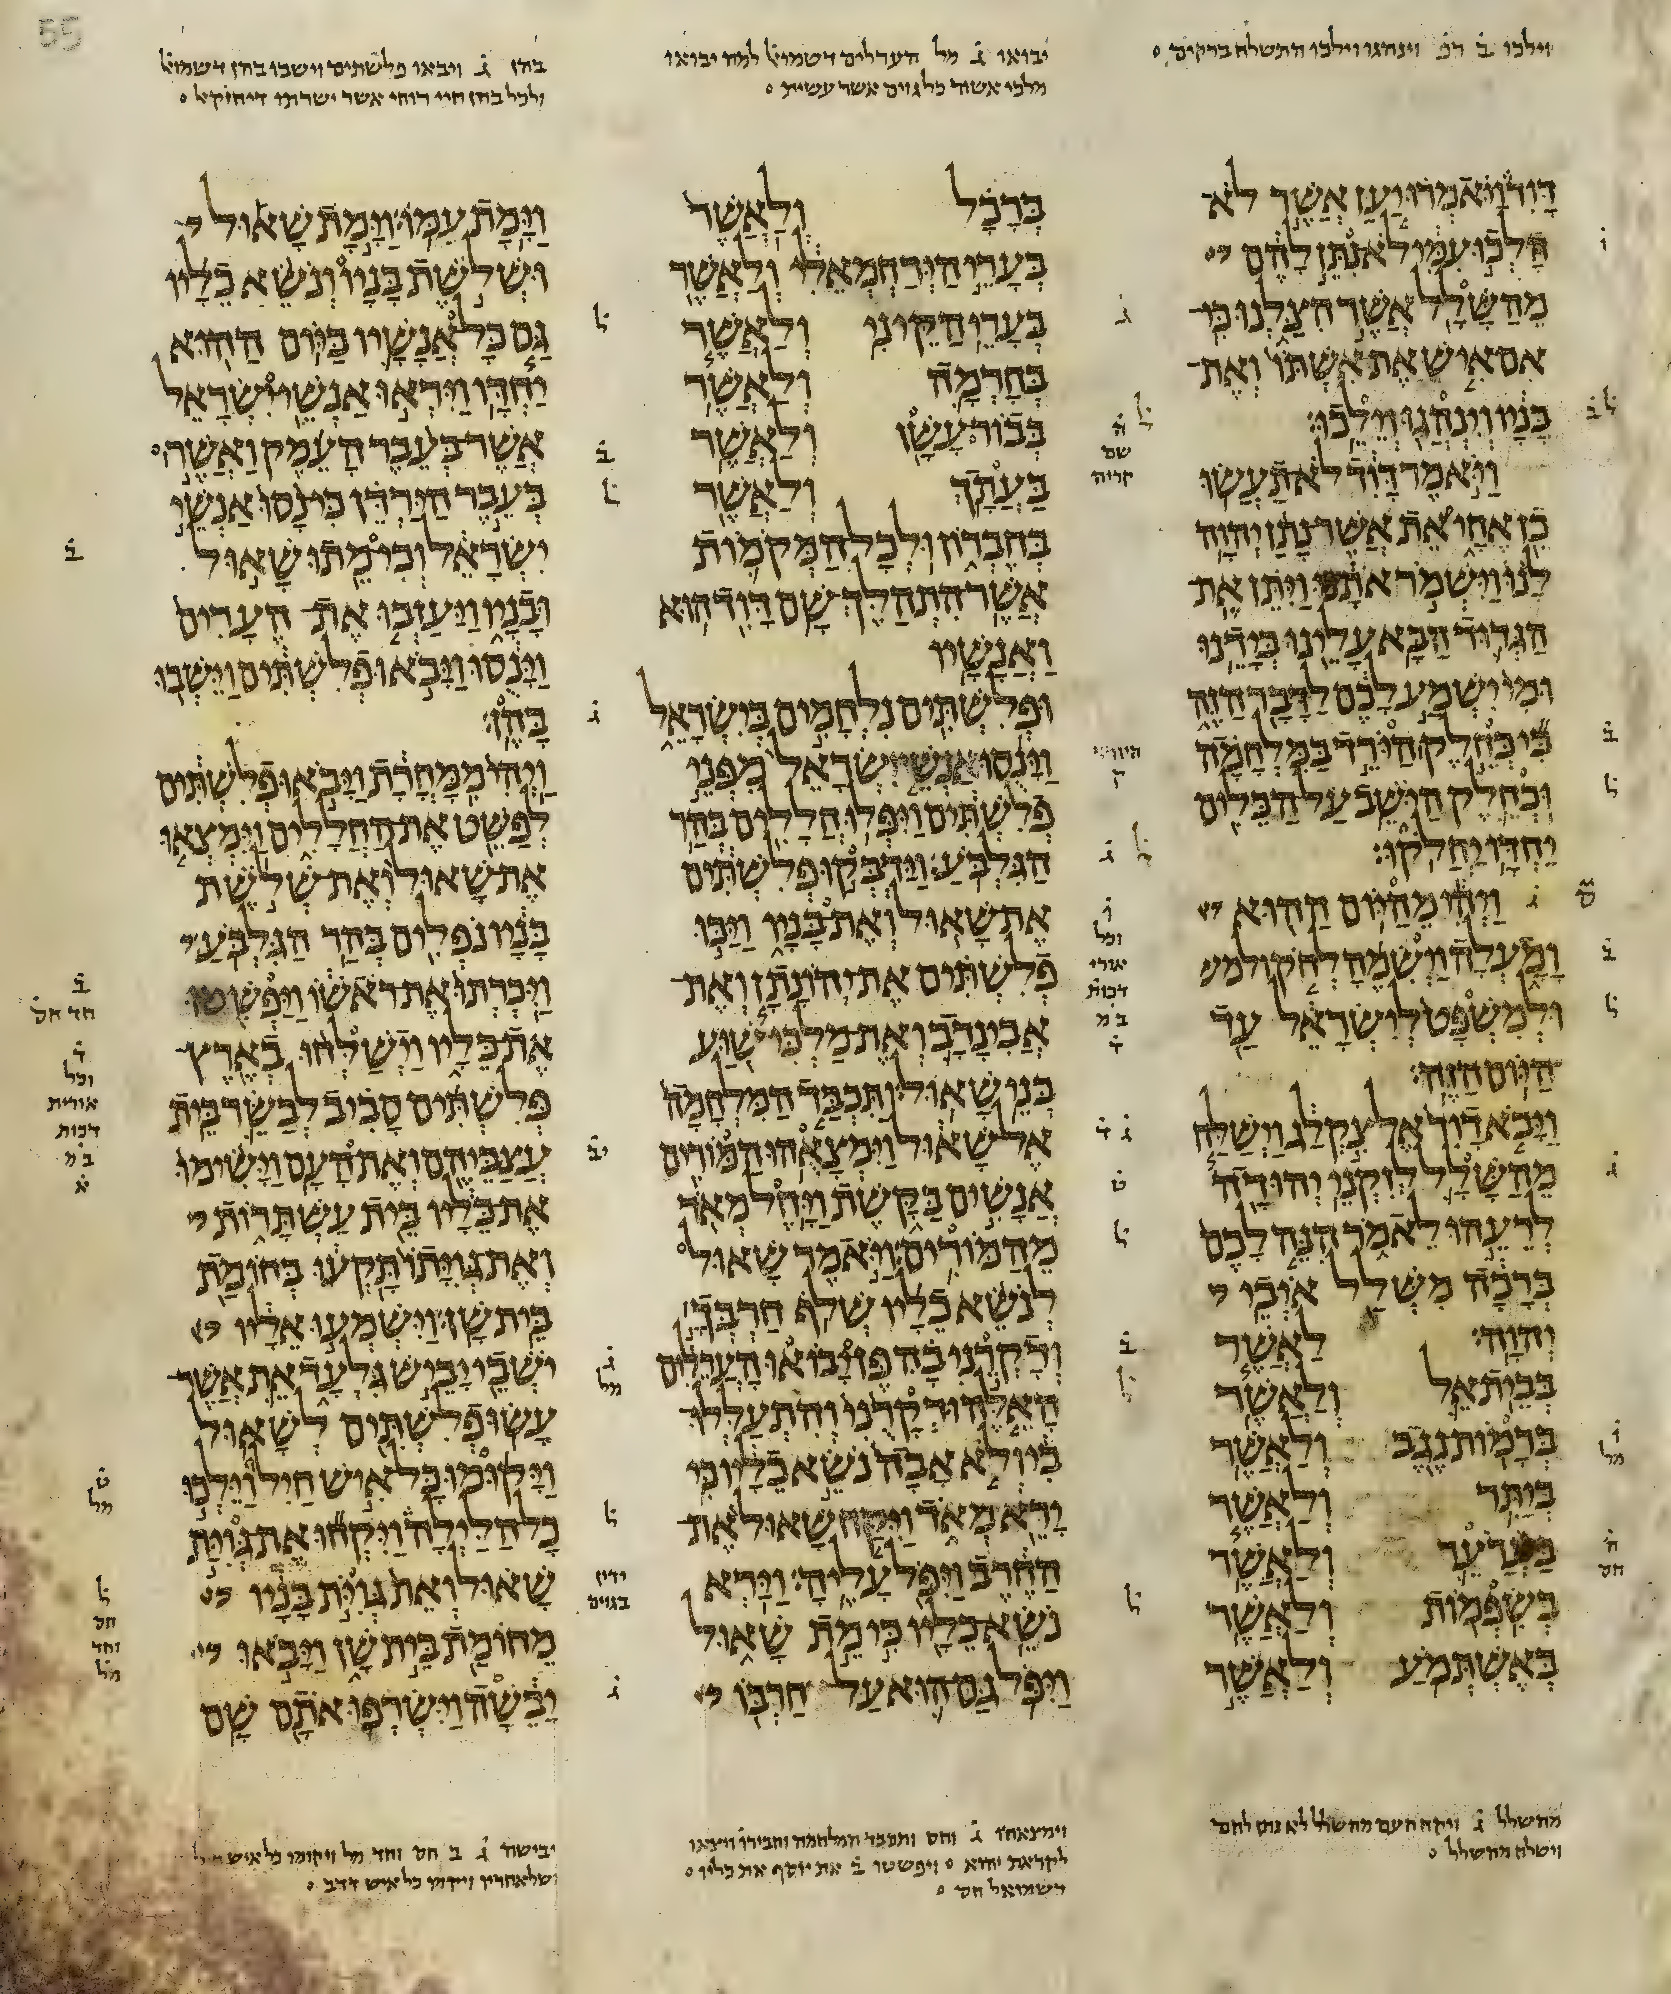 55
וילכו ב̇ דכ̇ וינהגו וילכו התשלח ברקים
יבואו ג̇ מל הערלים דשמוא̇ל למה יבואו
מלכי אשור כל גוים אשר עשית
בהן ג̇ ויבאו פלשתים וישבו בהן דשמוא̇ל
ולכל בהן חיי רוחי אשר ישרתו דיחזק̇אל
דָּוִד וַיֹּאמְרוּ יַעַן אֲשֶׁר לֹא
הָלְכוּ עִמִּי לֹא נִתֵּן לָהֶם
מֵהַשָּׁלָל אֲשֶׁר הִצַּלְנוּ כִּי
אִם אִישׁ אֶת אִשְׁתּוֹ וְאֶת
בָּנָיו וְיִנְהֲגוּ וְיֵלֵכוּ׃
וַיֹּאמֶר דָּוִד לֹא תַעֲשׂוּ
כֵן אֶחָי אֵת אֲשֶׁר נָתַן יְהוָה
לָנוּ וַיִּשְׁמֹר אֹתָנוּ וַיִּתֵּן אֶת
הַגְּדוּד הַבָּא עָלֵינוּ בְּיָדֵנוּ
וּמִי יִשְׁמַע לָכֶם לַדָּבָר הַזֶּה
כִּי כְּחֵלֶק הַיֹּרֵד בַּמִּלְחָמָה
וּכְחֵלֶק הַיֹּשֵׁב עַל הַכֵּלִים
יַחְדָּו יַחֲלֹקוּ׃
וַיְהִי מֵהַיּוֹם הַהוּא
וָמָעְלָה וַיְשִׂמֶהָ לְחֹק וּלְמִשׁ
וּלְמִשְׁפָּט לְיִשְׂרָאֵל עַד
הַיּוֹם הַזֶּה׃
וַיָּבֹא דָוִד אֶל צִקְלַג וַיְשַׁלַּח
מֵהַשָּׁלָל לְזִקְנֵי יְהוּדָה
לְרֵעֵהוּ לֵאמֹר הִנֵּה לָכֶם
בְּרָכָה מִשְּׁלַל אֹיְבֵי
יְהוָה׃ לַאֲשֶׁר
בְּבֵית אֵל וְלַאֲשֶׁר
בְּרָמוֹת נֶגֶב וְלַאֲשֶׁר
בְּיַתִּר וְלַאֲשֶׁר
בַּעֲרֹעֵר וְלַאֲשֶׁר
בְּשִׂפְמוֹת וְלַאֲשֶׁר
בְּאֶשְׁתְּמֹעַ וְלַאֲשֶׁר
בְּרָכָל וְלַאֲשֶׁר
בְּעָרֵי הַיְּרַחְמְאֵלִי וְלַאֲשֶׁר
בְּעָרֵי הַקֵּינִי וְלַאֲשֶׁר
בְּחָרְמָה וְלַאֲשֶׁר
בְּבוֹר עָשָׁן וְלַאֲשֶׁר
בַּעֲתָךְ וְלַאֲשֶׁר
בְּחֶבְרוֹן וּלְכָל הַמְּקֹמוֹת
אֲשֶׁר הִתְהַלֶּךְ שָׁם דָּוִד הוּא
וַאֲנָשָׁיו
וּפְלִשְׁתִּים נִלְחָמִים בְּיִשְׂרָאֵל
וַיָּנֻסוּ אַנְשֵׁי יִשְׂרָאֵל מִפְּנֵי
פְלִשְׁתִּים וַיִּפְּלוּ חֲלָלִים בְּהַר
הַגִּלְבֹּעַ׃ וַיַּדְבְּקוּ פְלִשְׁתִּים
אֶת שָׁאוּל וְאֶת בָּנָיו וַיַּכּוּ
פְלִשְׁתִּים אֶת יְהוֹנָתָן וְאֶת
אֲבִינָדָב וְאֶת מַלְכִּי שׁוּעַ
בְּנֵי שָׁאוּל׃ וַתִּכְבַּד הַמִּלְחָמָה
אֶל שָׁאוּל וַיִּמְצָאֻהוּ הַמּוֹרִים
אֲנָשִׁים בַּקָּשֶׁת וַיָּחֶל מְאֹד
מֵהַמּוֹרִים׃ וַיֹּאמֶר שָׁאוּל
לְנֹשֵׂא כֵלָיו שְׁלֹף חַרְבְּךָ
וְדָקְרֵנִי בָהּ פֶּן יָבוֹאוּ הָעֲרֵלִים
הָאֵלֶּה וּדְקָרֻנִי וְהִתְעַלְּלוּ
בִי וְלֹא אָבָה נֹשֵׂא כֵלָיו כִּי
יָרֵא מְאֹד וַיִּקַּח שָׁאוּל אֶת
הַחֶרֶב וַיִּפֹּל עָלֶיהָ׃ וַיַּרְא
נֹשֵׂא כֵלָיו כִּי מֵת שָׁאוּל
וַיִּפֹּל גַּם הוּא עַל חַרְבּוֹ
וַיָּמָת עִמּוֹ׃ וַיָּמָת שָׁאוּל
וּשְׁלֹשֶׁת בָּנָיו וְנֹשֵׂא כֵלָיו
גַּם כָּל אֲנָשָׁיו בַּיּוֹם הַהוּא
יַחְדָּו׃ וַיִּרְאוּ אַנְשֵׁי יִשְׂרָאֵל
אֲשֶׁר בְּעֵבֶר הָעֵמֶק וַאֲשֶׁר
בְּעֵבֶר הַיַּרְדֵּן כִּי נָסוּ אַנְשֵׁי
יִשְׂרָאֵל וְכִי מֵתוּ שָׁאוּל
וּבָנָיו וַיַּעַזְבוּ אֶת הֶעָרִים
וַיָּנֻסוּ וַיָּבֹאוּ פְלִשְׁתִּים וַיֵּשְׁבוּ
בָּהֶן׃
וַיְהִי מִמָּחֳרָת וַיָּבֹאוּ פְלִשְׁתִּים
לְפַשֵּׁט אֶת הַחֲלָלִים וַיִּמְצְאוּ
אֶת שָׁאוּל וְאֶת שְׁלֹשֶׁת
בָּנָיו נֹפְלִים בְּהַר הַגִּלְבֹּעַ׃
וַיִּכְרְתוּ אֶת רֹאשׁוֹ וַיַּפְשִׁטוּ
אֶת כֵּלָיו וַיְשַׁלְּחוּ בְאֶרֶץ
פְּלִשְׁתִּים סָבִיב לְבַשֵּׂר בֵּית
עֲצַבֵּיהֶם וְאֶת הָעָם׃ וַיָּשִׂימוּ
אֶת כֵּלָיו בֵּית עַשְׁתָּרוֹת
וְאֶת גְּוִיָּתוֹ תָּקְעוּ בְּחוֹמַת
בֵּית שָׁן׃ וַיִּשְׁמְעוּ אֵלָיו
יֹשְׁבֵי יָבֵישׁ גִּלְעָד אֵת אֲשֶׁר
עָשׂוּ פְלִשְׁתִּים לְשָׁאוּל׃
וַיָּקוּמוּ כָּל אִישׁ חַיִל וַיֵּלְכוּ
כָל הַלַּיְלָה וַיִּקְחוּ אֶת גְּוִיַּת
שָׁאוּל וְאֵת גְּוִיֹּת בָּנָיו
מֵחוֹמַת בֵּית שָׁן וַיָּבֹאוּ
יָבֵשָׁה וַיִּשְׂרְפוּ אֹתָם שָׁם
מהשלל ג̇ ויקח העם מהשלל
וישלח מהשלל
וימצאהו ג̇ וחס ותכבד המלחמה וחבירו ויצאו
לקראת יהוא ויפשטו ב̇ את יוסף את כליו
דשמואל חס
יבישה ג̇ ב חס וחד מל ויקומו כל איש
ושלאחריו ויקמו כל איש